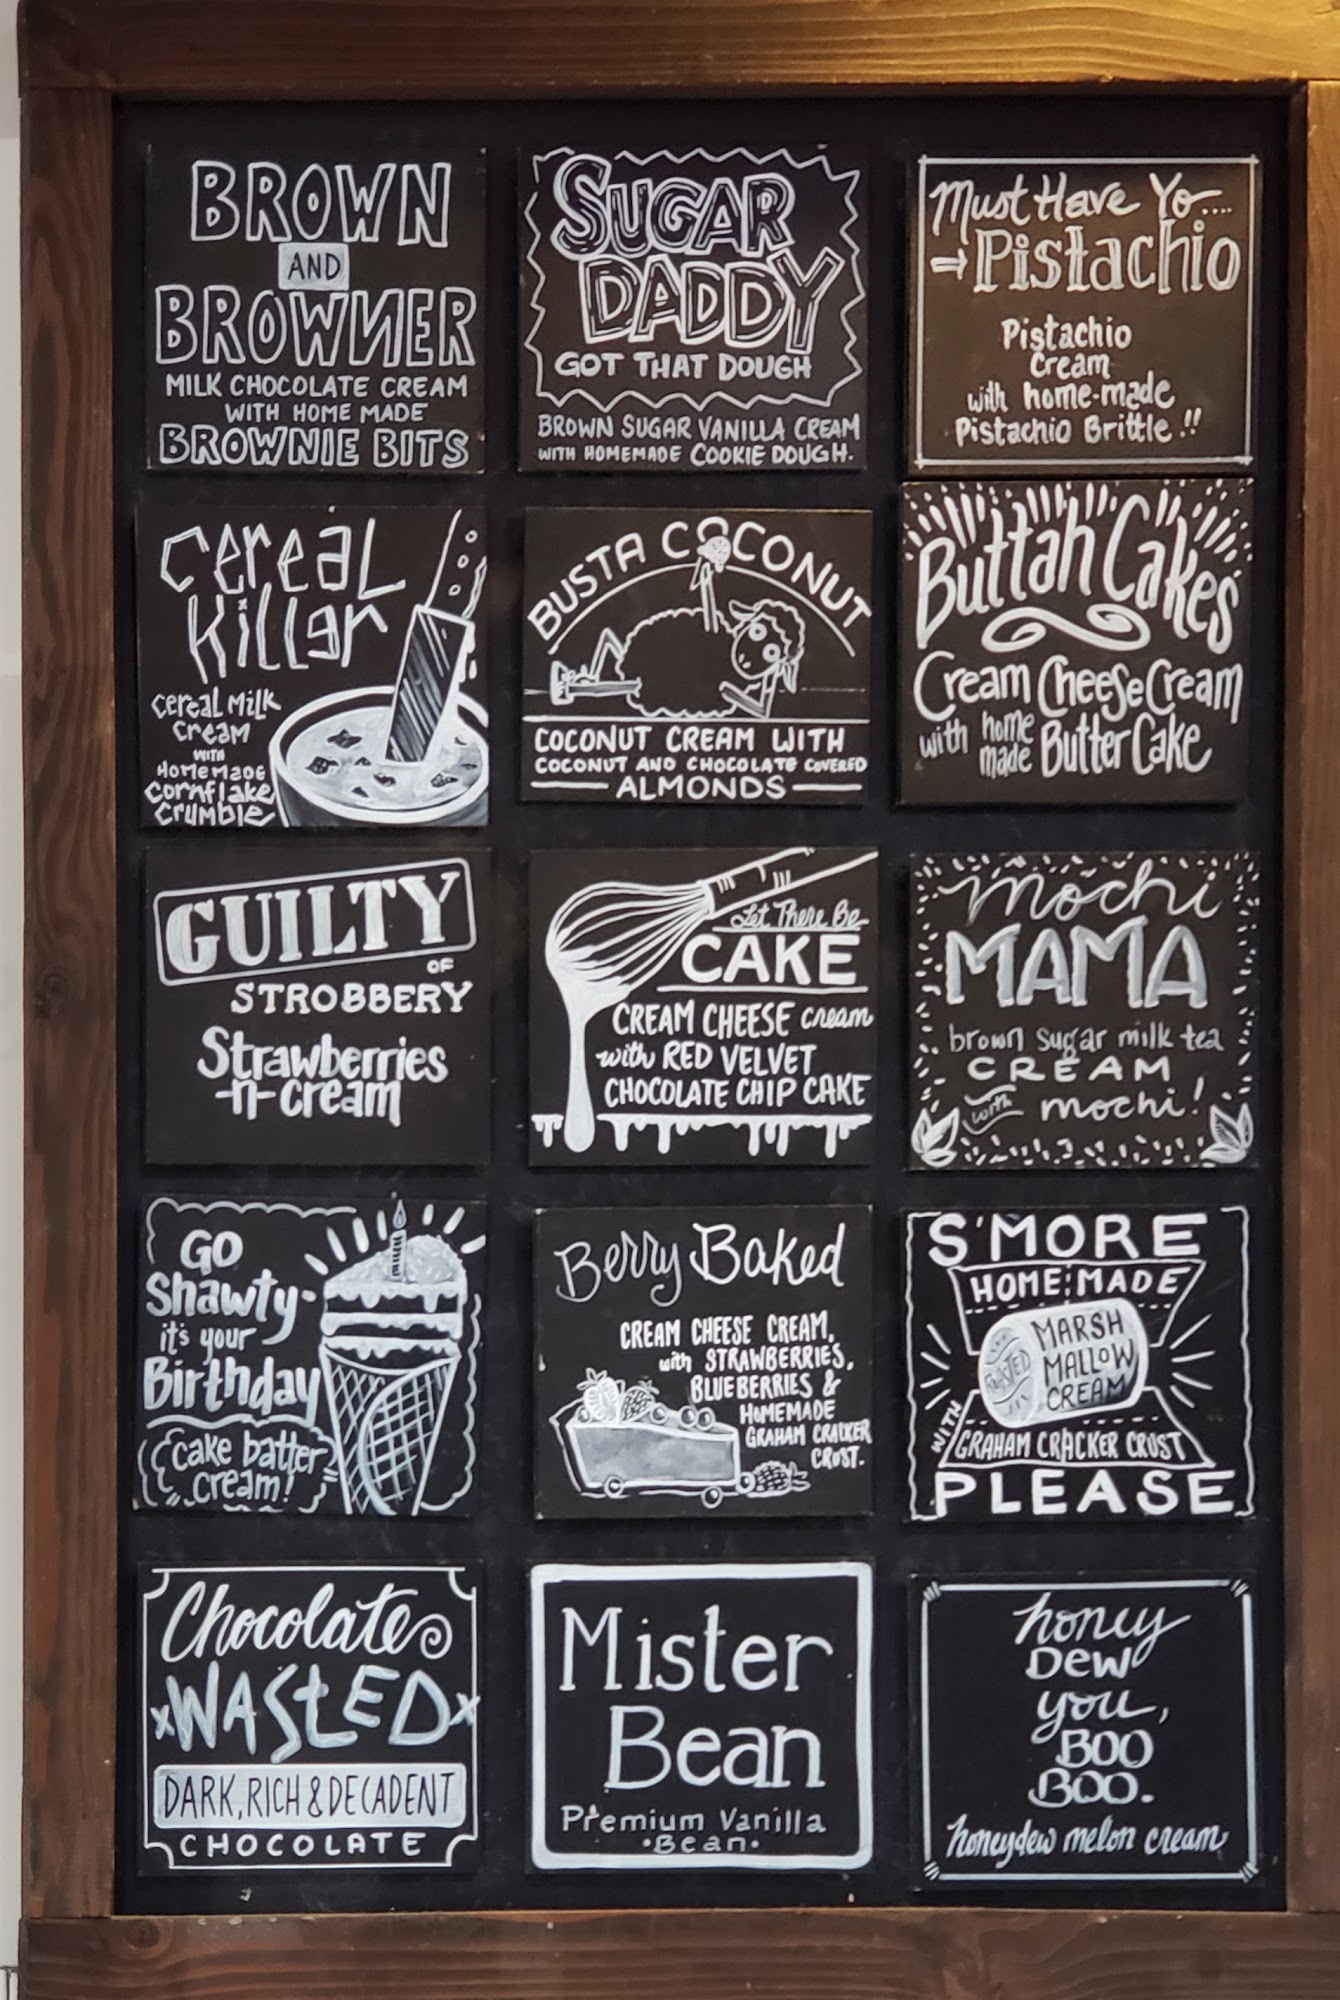 BROWN
AND
BROWNER
MILK CHOCOLATE CREAM
WITH HOME MADE
BROWNIE BITS
SUGAR
DADDY
GOT THAT DOUGH
BROWN SUGAR VANILLA CREAM
WITH HOMEMADE COOKIE DOUGH.
Must Have Yo....
→Pistachio
Pistachio
Cream
with home-made
Pistachio Brittle!!
Cereal
Killer
Cereal Milk
Cream
WITH
Homemade
Cornflake
Crumble
BUSTA COCONUT
COCONUT CREAM WITH
COCONUT AND CHOCOLATE COVERED
ALMONDS
Buttah Cakes
Cream Cheese Cream
with home
made Butter Cake
GUILTY
OF
STROBBERY
Strawberries
-n-cream
Let There Be
CAKE
CREAM CHEESE cream
with RED VELVET
CHOCOLATE CHIP CAKE
Mochi
MAMA
brown sugar milk tea
CREAM
with mochi!
GO
Shawty-
it's your
Birthday
Cake batter
Cream!
Berry Baked
CREAM CHEESE CREAM,
with STRAWBERRIES,
BLUEBERRIES &
HOMEMADE
GRAHAM CRACKER
CRUST.
S'MORE
HOMEMADE
ROASTED
MARSH
MALLOW
CREAM
WITH
GRAHAM CRACKER CRUST
PLEASE
Chocolate
xWASTEDx
DARK, RICH & DECADENT
CHOCOLATE
Mister
Bean
Premium Vanilla
•Bean•
honey
Dew
you,
BOO
BOO.
honeydew melon cream